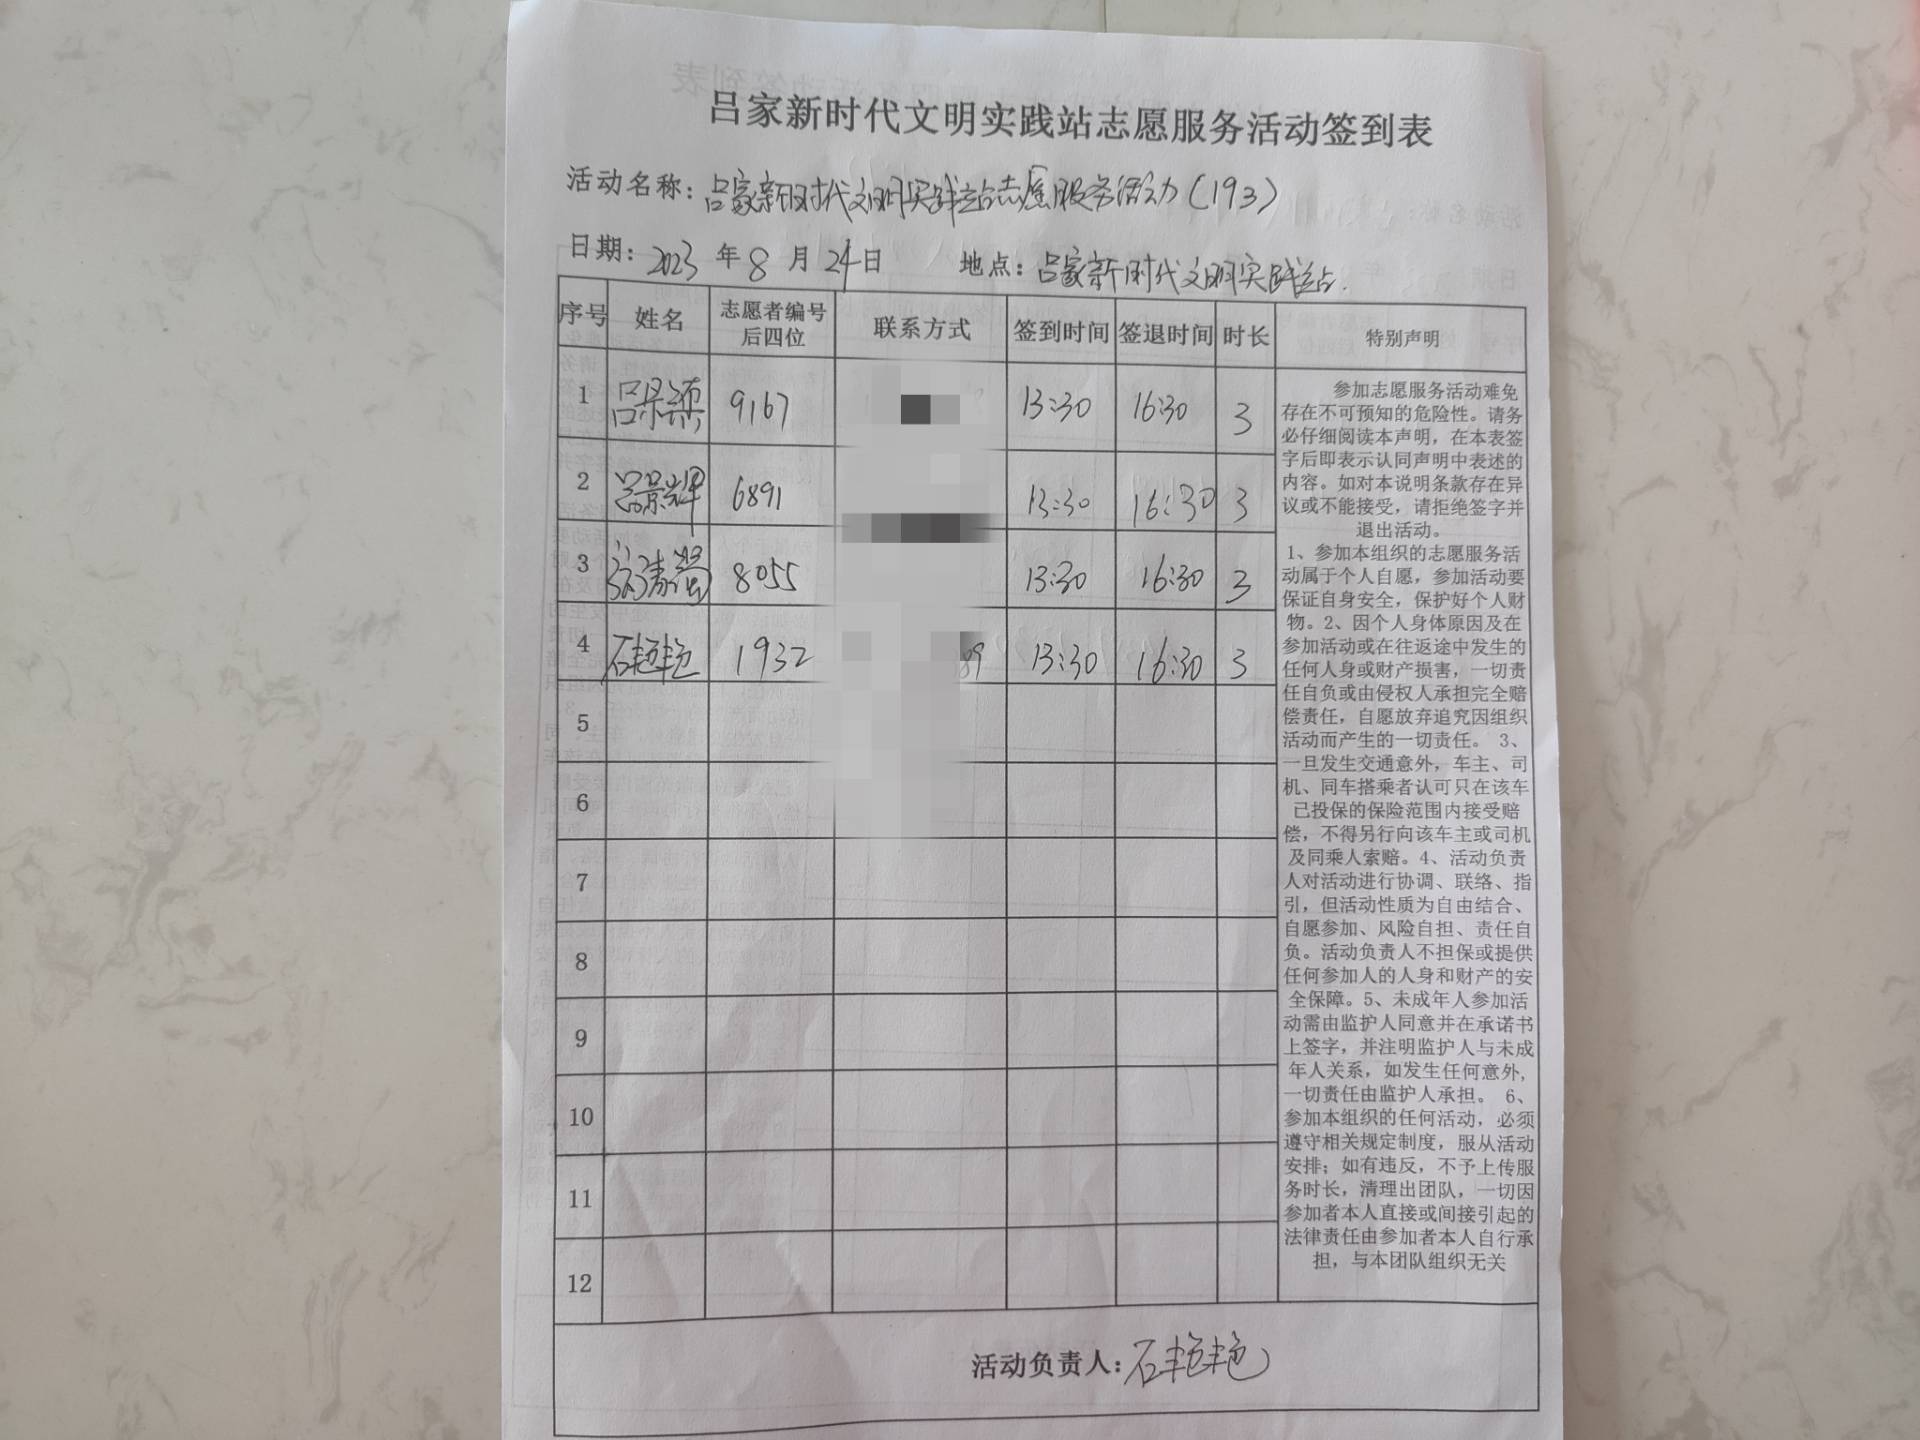 吕家新时代文明实践站志愿服务活动签到表
活动名称：吕家新时代文明实践站志愿服务活动（193）
日期：2023 年 8 月 24日 地点：吕家新时代文明实践站.
序号 姓名 志愿者编号后四位 联系方式 签到时间 签退时间 时长 特别声明
1 吕景 9167 13:30 16:30 3
2 吕景辉 6891 13:30 16:30 3
3 8055 13:30 16:30 3
4 石艳艳 1932 89 13:30 16:30 3
5
6
7
8
9
10
11
12
参加志愿服务活动难免
存在不可预知的危险性。请务
必仔细阅读本声明，在本表签
字后即表示认同声明中表述的
内容。如对本说明条款存在异
议或不能接受，请拒绝签字并
退出活动。
1、参加本组织的志愿服务活
动属于个人自愿，参加活动要
保证自身安全，保护好个人财
物。2、因个人身体原因及在
参加活动或在往返途中发生的
任何人身或财产损害，一切责
任自负或由侵权人承担完全赔
偿责任，自愿放弃追究因组织
活动而产生的一切责任。 3、
一旦发生交通意外，车主、司
机、同车搭乘者认可只在该车
已投保的保险范围内接受赔
偿，不得另行向该车主或司机
及同乘人索赔。4、活动负责
人对活动进行协调、联络、指
引，但活动性质为自由结合、
自愿参加、风险自担、责任自
负。活动负责人不担保或提供
任何参加人的人身和财产的安
全保障。5、未成年人参加活
动需由监护人同意并在承诺书
上签字，并注明监护人与未成
年人关系，如发生任何意外，
一切责任由监护人承担。 6、
参加本组织的任何活动，必须
遵守相关规定制度，服从活动
安排；如有违反，不予上传服
务时长，清理出团队，一切因
参加者本人直接或间接引起的
法律责任由参加者本人自行承
担，与本团队组织无关
活动负责人：石艳艳